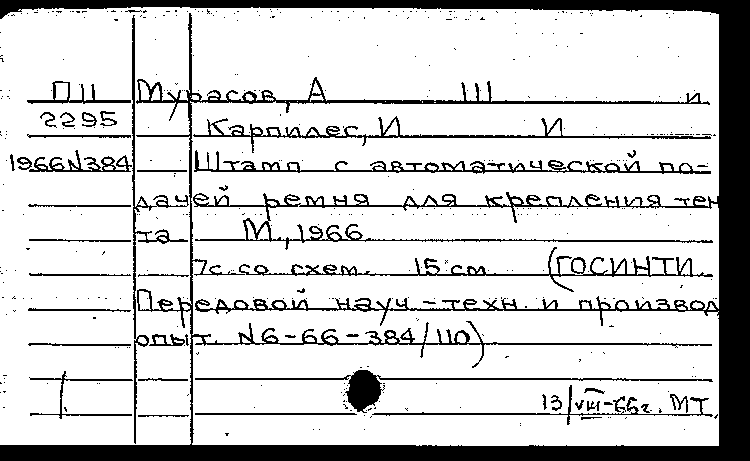 П11 Мурасов, А Ш и
2295 Карпилес, И И
1966N384 Штамп с автоматической по-
дачей ремня для крепления тен
та М., 1966
7с. со схем. 15 см (ГОСИНТИ.
Передовой науч-техн. и производ
опыт. N6-66-384/110)
13/VIII-66г. МТ.